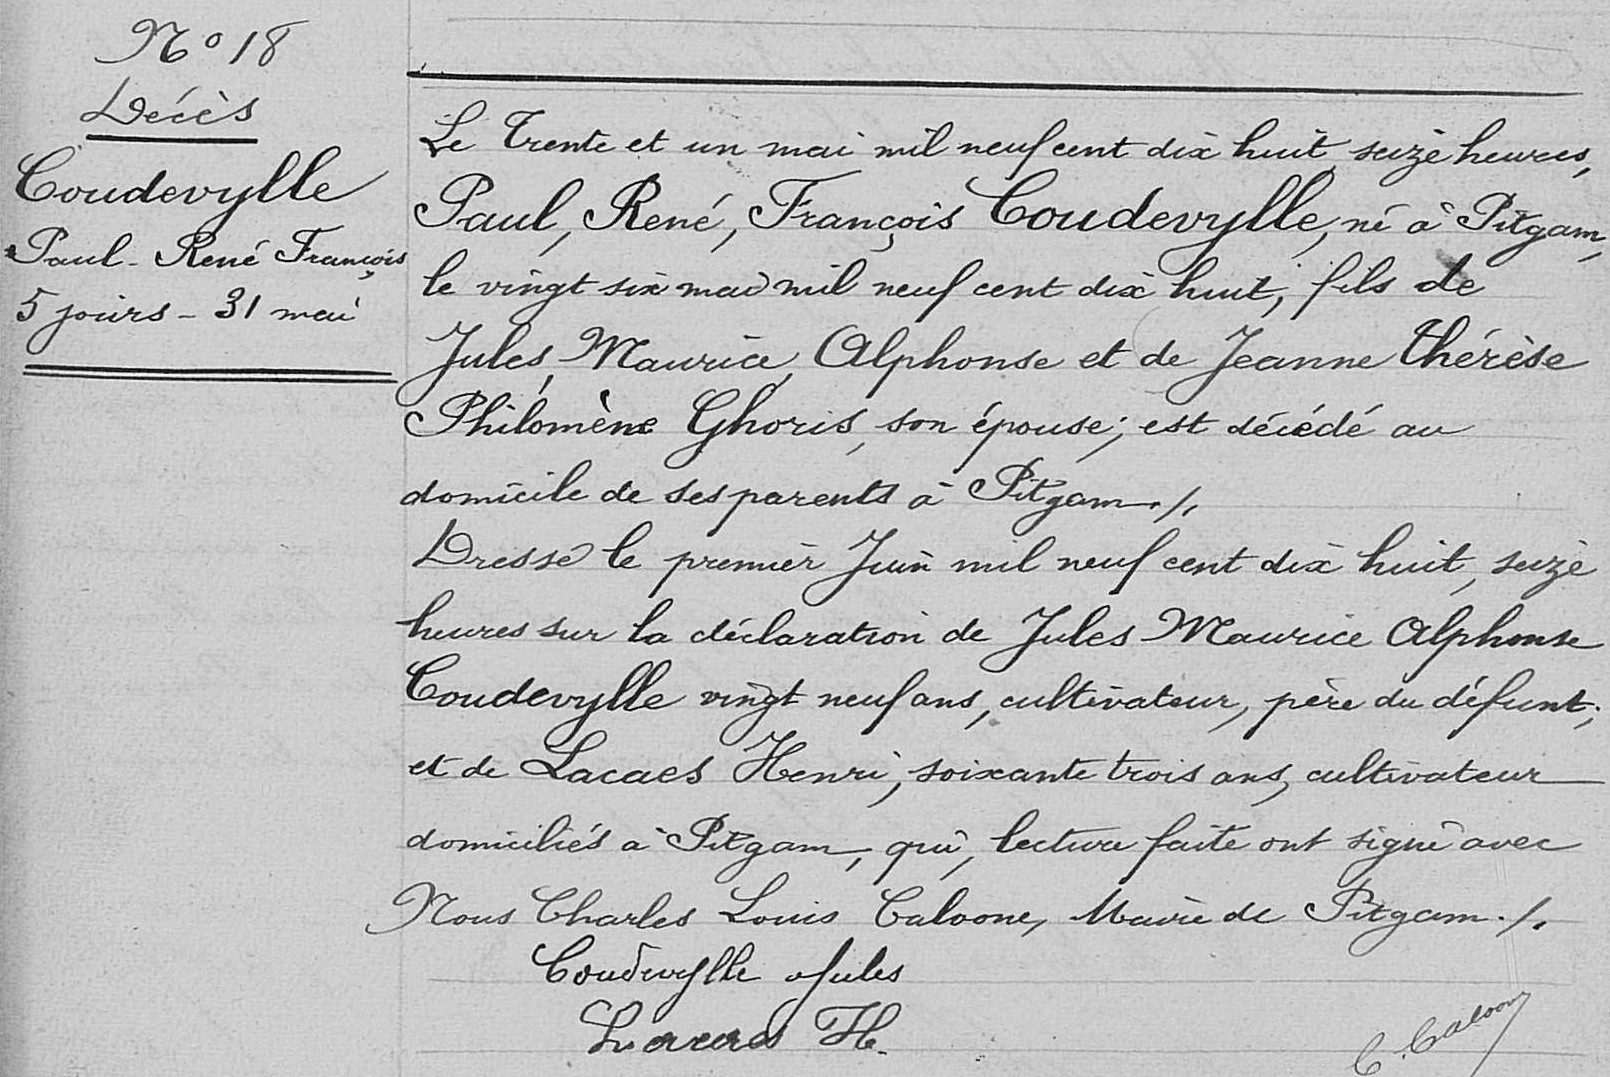 No 18
Décès
Coudevylle
Paul - René François
5 jours - 31 mai
Le Trente et un mai mil neuf cent dix huit, seize heures,
Paul, René, François Coudevylle, né à Pitgam,
le vingt six mai mil neuf cent dix huit, fils de
Jules, Maurice, Alphonse et de Jeanne Thérèse
Philomène Ghoris, son épouse; est décédé au
domicile de ses parents à Pitgam ./.
Dressé le premier Juin mil neuf cent dix huit, seize
heures sur la déclaration de Jules Maurice Alphonse
Coudevylle vingt neuf ans, cultivateur, père du défunt;
et de Lacaes Henri, soixante trois ans, cultivateur
domiciliés à Pitgam, qui, lecture faite ont signé avec
Nous Charles Louis Caloone, Maire de Pitgam ./.
Coudevylle Jules
Lacaes H.
C. Caloone